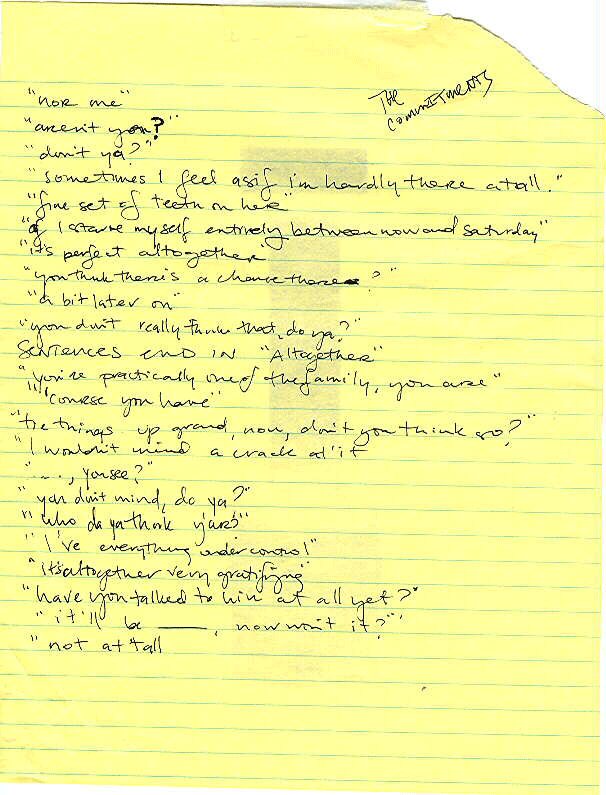 THE
COMMITMENTS
"nor me"
"aren't you?"
"don't ya?"
"sometimes I feel as if i'm hardly there atall."
"fine set of teeth on her"
"if I starve myself entirely between now and saturday"
"it's perfect altogether"
"you think there's a chance there?"
"a bit later on"
"you don't really think that, do ya?"
SENTENCES END IN "Altogether"
"you're practically one of the family, you are"
"'course you have"
"tie things up grand, now, don't you think so?"
"I wouldn't mind a crack at it
"...., you see?"
"you don't mind, do ya?"
"who do ya think y'are?"
"I've everything under control"
"it's altogether very gratifying"
"have you talked to him at all yet?"
"it'll be ____, now won't it?"
"not at tall